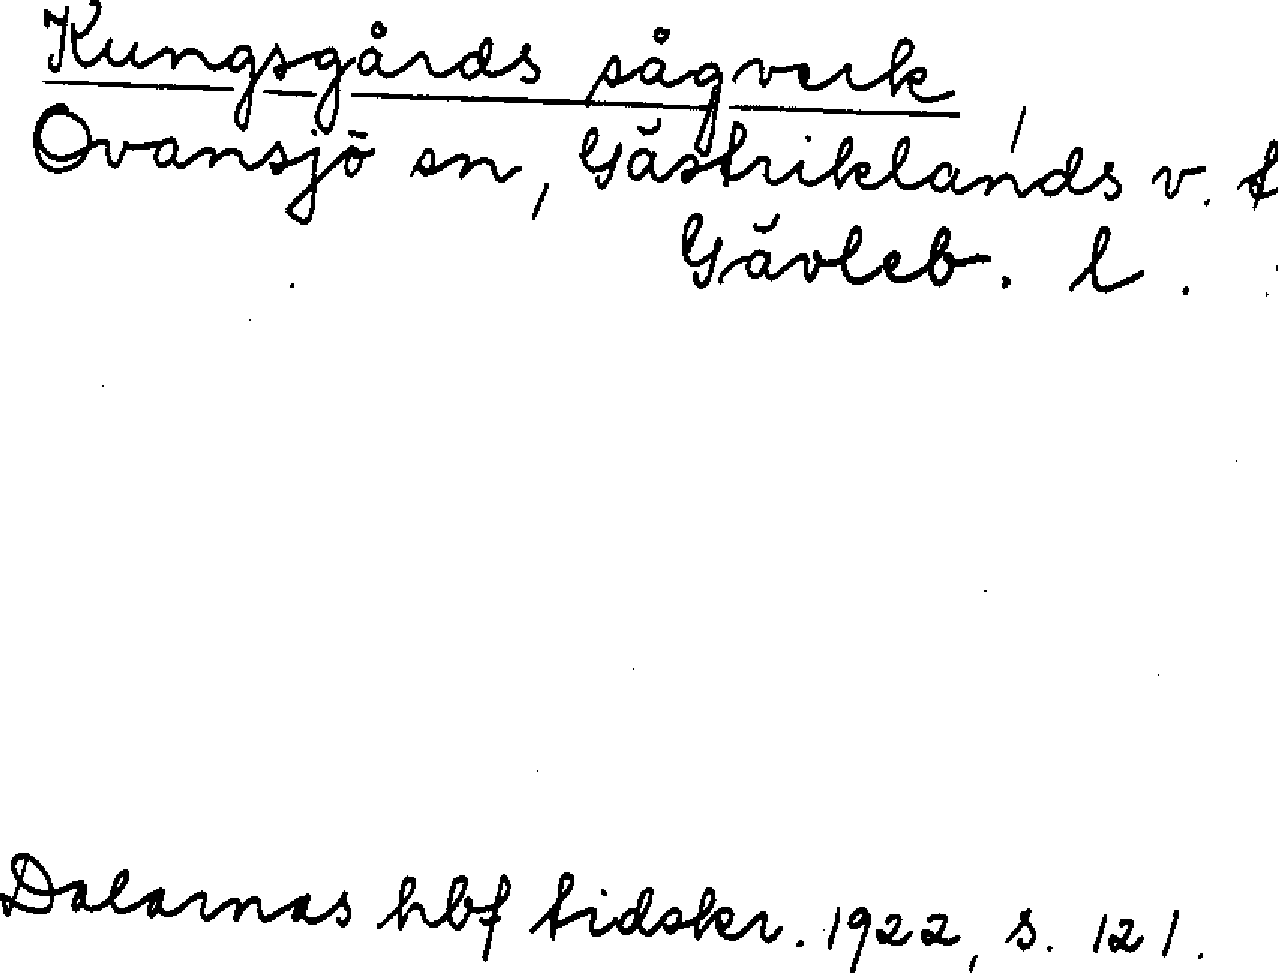 Kungsgårds sågverk,
Ovansjö sn, Gästriklands v. t
Gävleb. l.
Dalarnas hbf tidskr. 1922, s. 121.